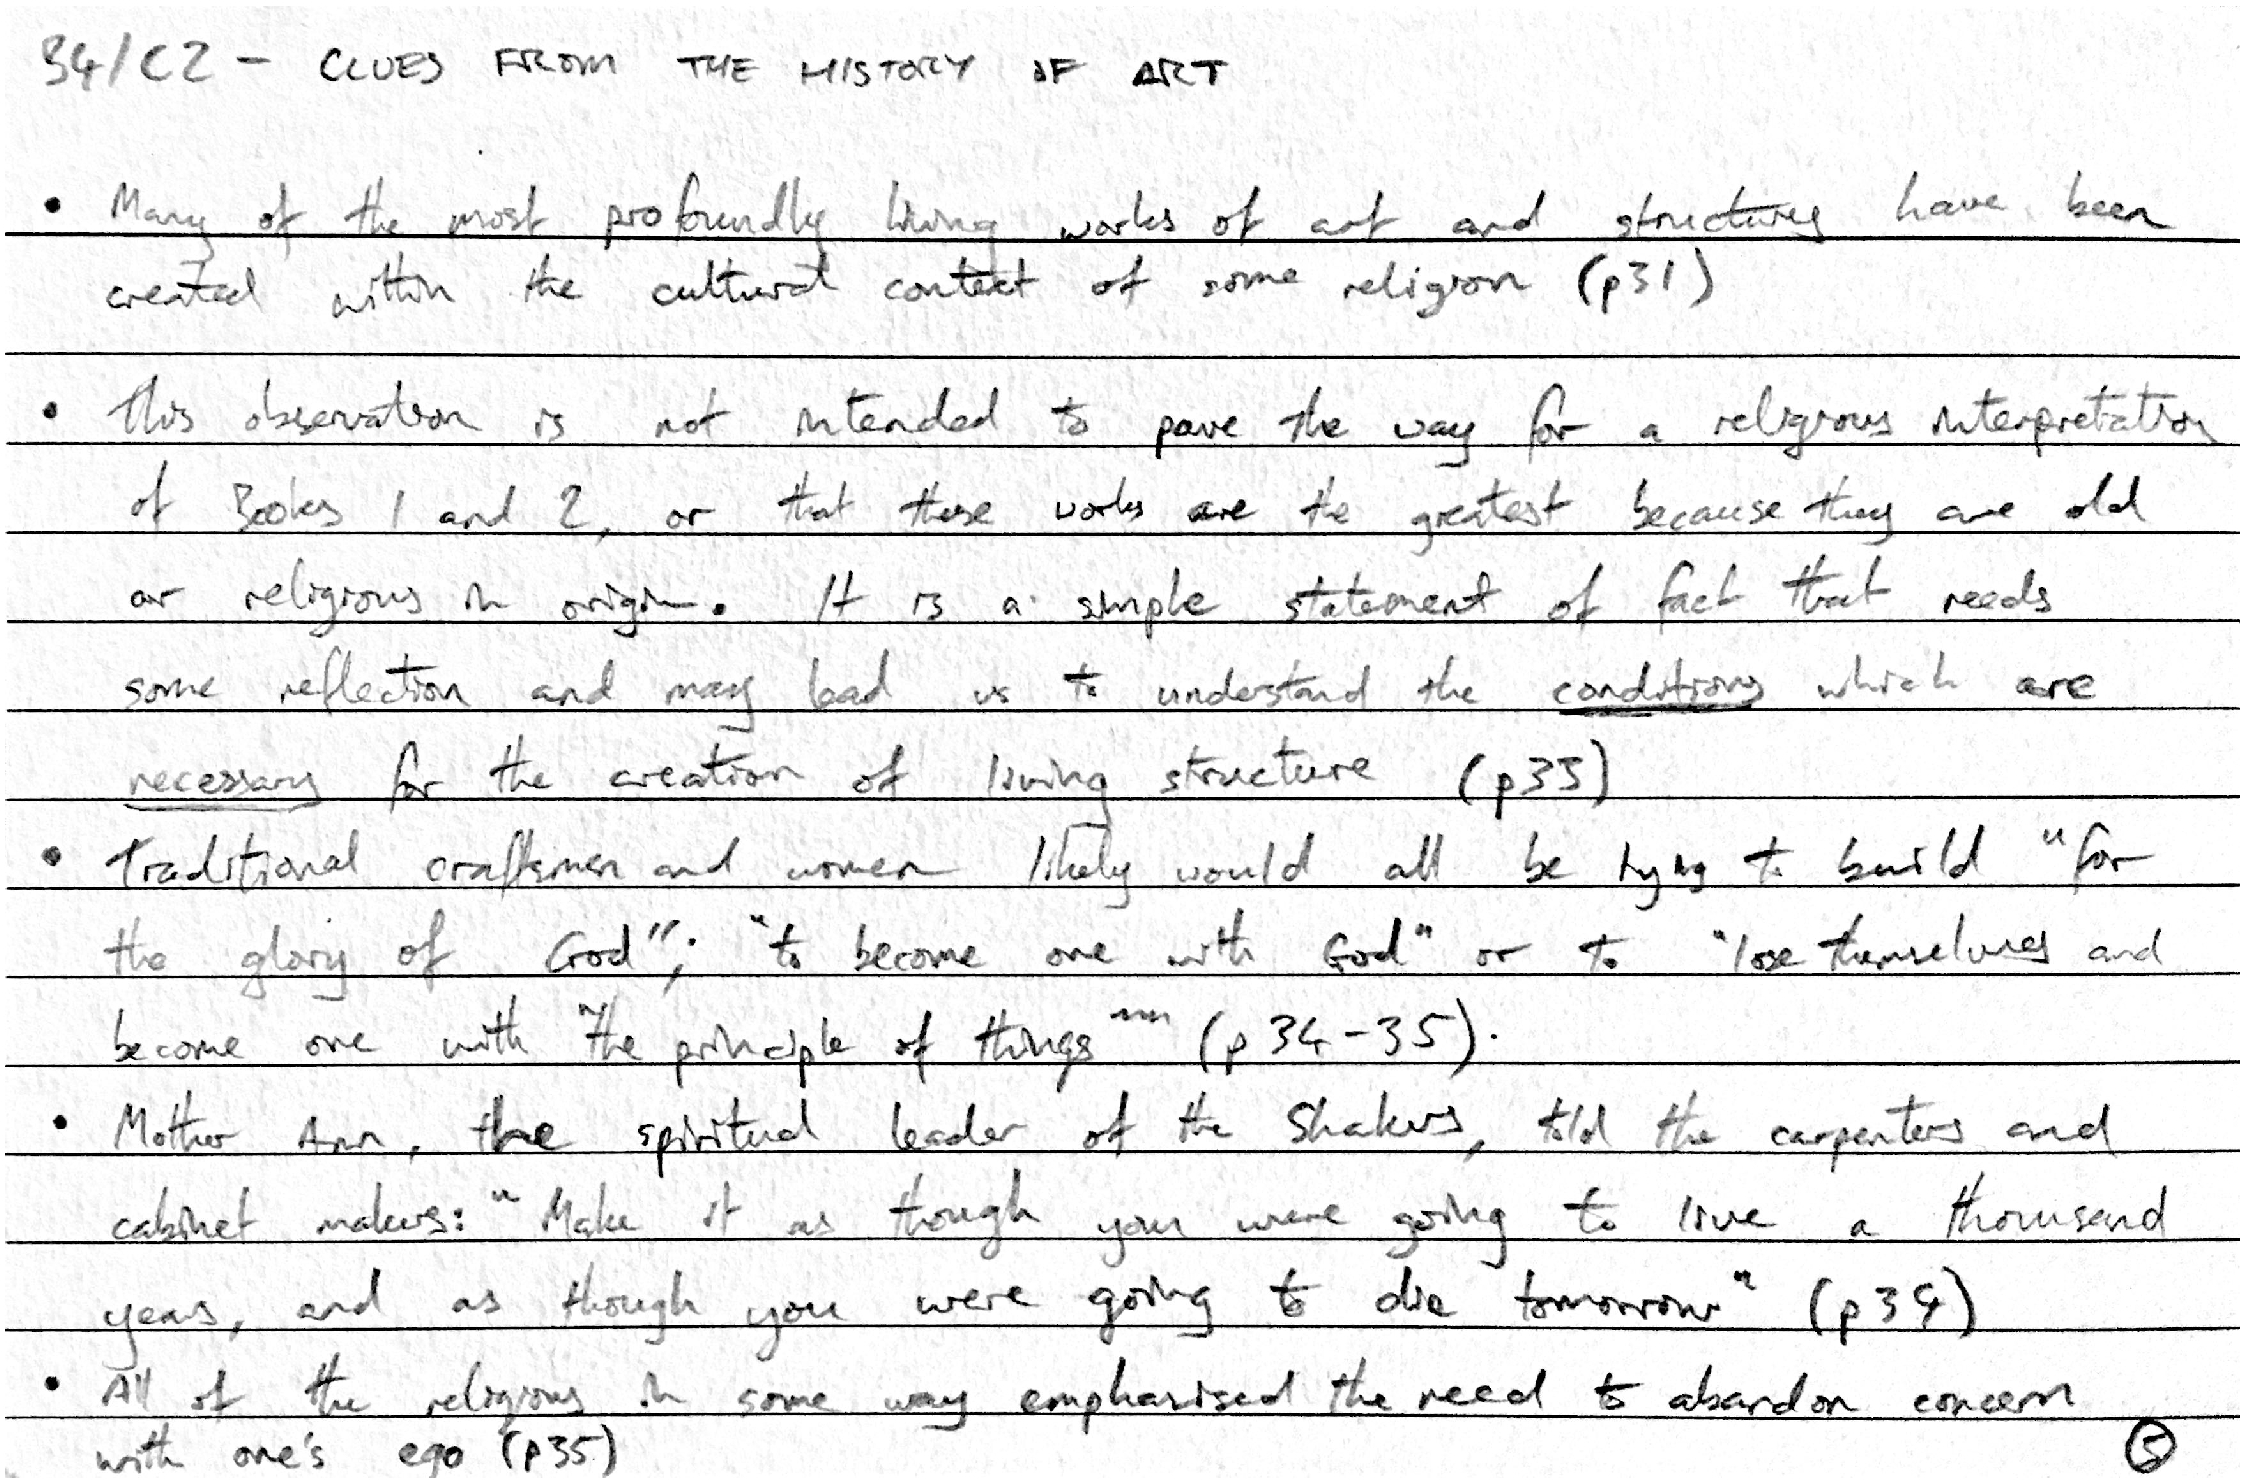 B4/C2 - CLUES FROM THE HISTORY OF ART
• Many of the most profoundly living works of art and structures have been
created within the cultural context of some religion (p31)
• This observation is not intended to pave the way for a religious interpretation
of Books 1 and 2, or that these works are the greatest because they are old
or religious in origin. It is a simple statement of fact that needs
some reflection and may lead us to understand the conditions which are
necessary for the creation of living structure (p33)
• Traditional craftsmen and women likely would all be trying to build "for
the glory of God"; "to become one with God" or to "lose themselves and
become one with "the principle of things"" (p34-35).
• Mother Ann, the spiritual leader of the Shakers, told the carpenters and
cabinet makers: "Make it as though you were going to live a thousand
years, and as though you were going to die tomorrow" (p34)
• All of the religions in some way emphasised the need to abandon concern
with one's ego (p35)
5